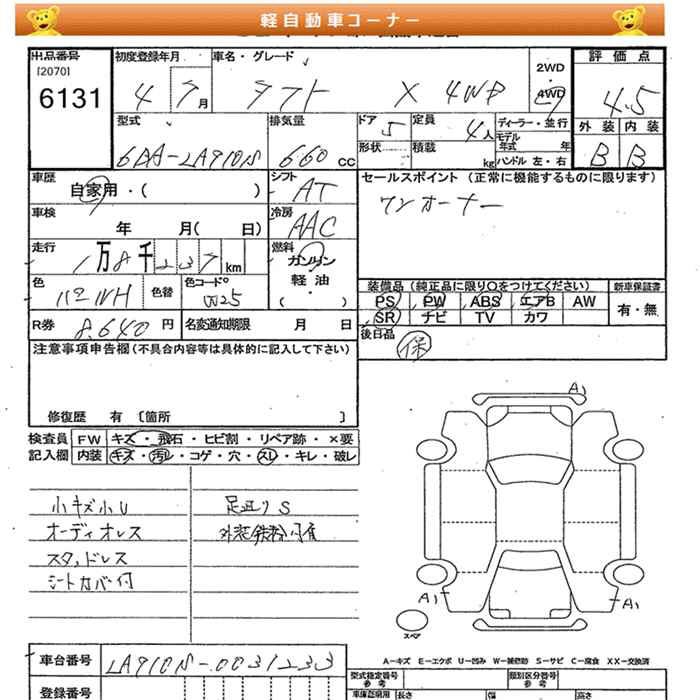 軽自動車コーナー
出品番号 初度登録年月 車名・グレード 2WD 評価点
[2070]
6131 4 7月 タフト X 4WD 4WD 4.5
型式 排気量 ドア 5 定員 4人 ディーラー・並行 外装 内装
6BA-LA910S 660 CC 形状 積載 kg モデル年式 年 ハンドル 左・右 B B
車歴 自家用・( ) シフト AT セールスポイント (正常に機能するものに限ります)
車検 年 月( 日) 冷房 AAC ワンオーナー
走行 1万8千237km 燃料 ガソリン 軽油 ( ・ )
色 パールH 色替 色コードNo W25 装備品 (純正品に限り○をつけてください) 新車保証書
PS PW ABS エアB AW 有・無
SR ナビ TV カワ
R券 8,640円 名変通知期限 月 日 後日品 保
注意事項申告欄(不具合内容等は具体的に記入して下さい)
修復歴 有 〔箇所 〕
検査員 FW キズ・飛石・ヒビ割・リペア跡・×要
記入欄 内装 キズ・汚レ・コゲ・穴・スレ・キレ・破レ
小キズ小U 足廻りS
オーディオレス 外装鉄粉有
スタッドレス
シートカバー付
A1
A1 A1
スペア
A-キズ E-エクボ U-凹み W-補修跡 S-サビ C-腐食 XX-交換済
車台番号 LA910S-0031233
型式指定番号 参考 類別区分番号 参考
登録番号 車庫証明用 長さ 幅 高さ